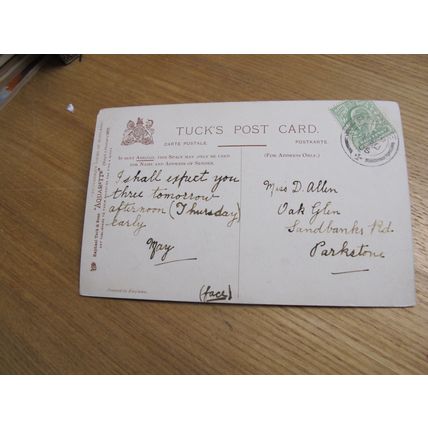 TUCK'S POST CARD.
CARTE POSTALE
POSTKARTE
IF SENT ABROAD, THIS SPACE MAY ONLY BE USED
FOR NAME AND ADDRESS OF SENDER.
(FOR ADDRESS ONLY.)
I shall expect you
three tomorrow
afternoon (Thursday)
early
May
(face)
Miss D. Allen
Oak Glen
Sandbanks Rd.
Parkstone
Raphael Tuck & Sons' "AQUARETTE"